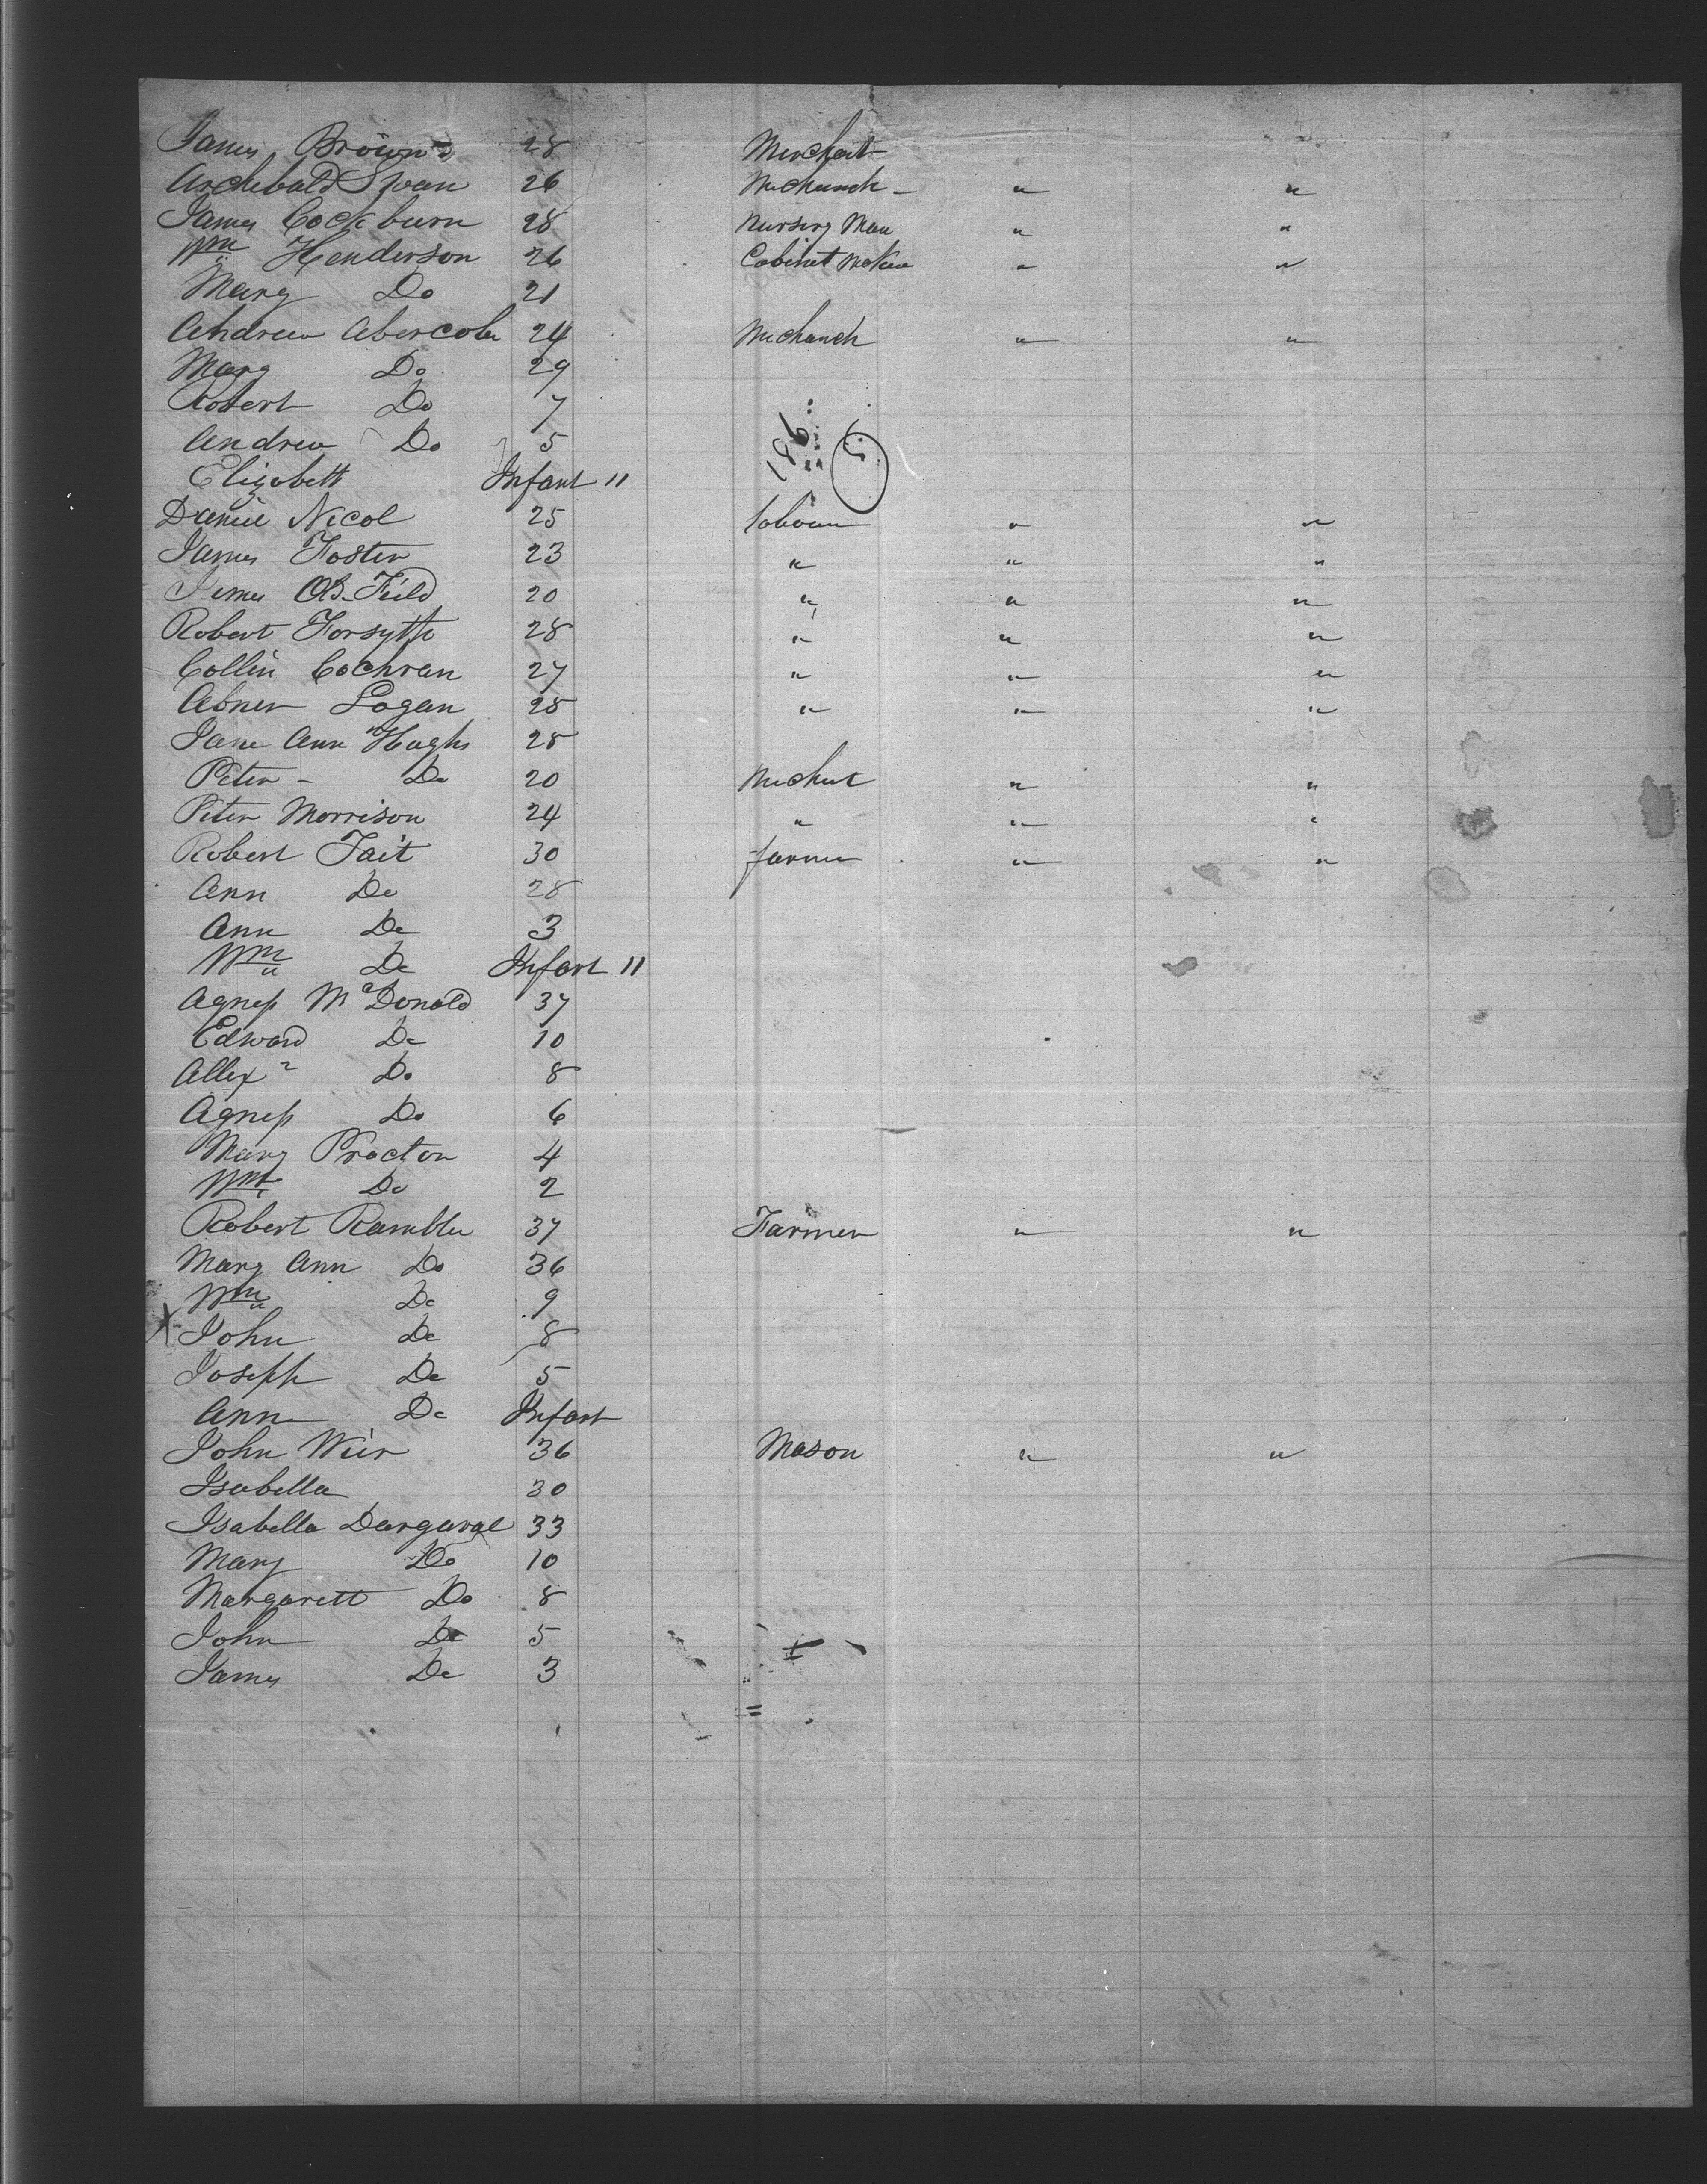 James Brown 28 Merchant
Archibald Swan 26 Mechanick - " "
James Cockburn 28 Nursery Man " "
Wm Henderson 26 Cabinet Maker " "
Mary Do 21
Andrew 24 Mechanick " "
Mary Do 29
Robert Do 7
Andrew Do 5
Elizabett Infant 11
Daniel Nicol 25 " "
James Foster 23 " " "
James Field 20 " " "
Robert Forsyth 28 " " "
Collin Cochran 27 " " "
Abner Logan 28 " " "
Jane Ann Hughs 28
Peter - Do 20 " "
Peter Morrison 24 " " "
Robert Tait 30 farmer " "
Ann Do 28
Ann Do 3
Wm Do Infant 11
Agness McDonald 37
Edward Do 10
Allexr Do 8
Agness Do 6
Mary Procter 4
Wm Do 2
Robert Rambler 37 Farmer " "
Mary Ann Do 36
Wm Do 9
John Do 8
Joseph Do 5
Ann Do Infant
John Weir 36 Mason " "
Isabella 30
Isabella Dargaval 33
Mary Do 10
Margarett Do 8
John Do 5
James Do 3